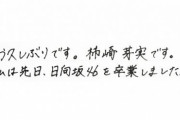 う久しぶりです。柿崎芽実です。
ムは先日、日向坂46を卒業しました